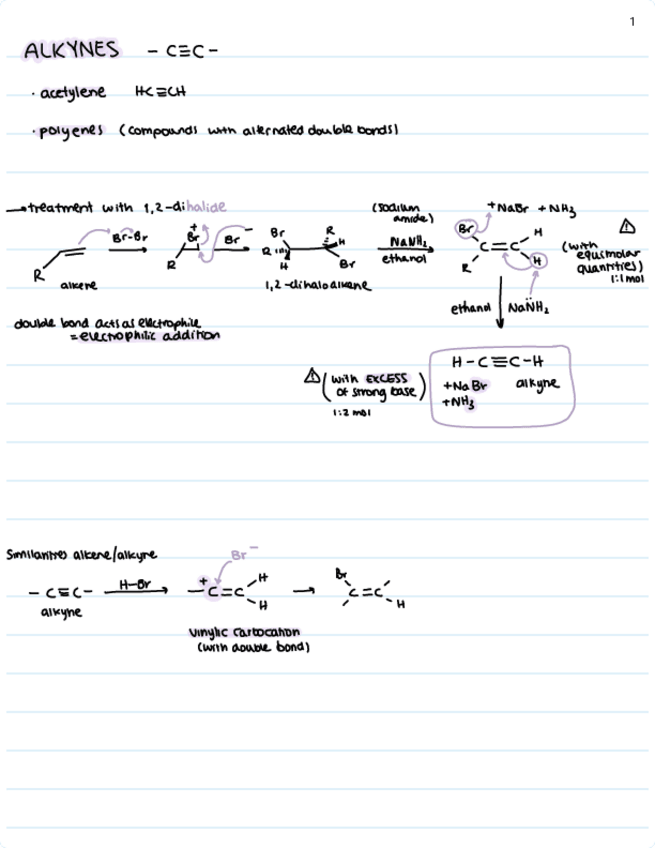 1
ALKYNES - C≡C -
· acetylene HC≡CH
· polyenes (compounds with alternated double bonds)
→ treatment with 1,2-dihalide
R
alkene
Br-Br
+
Br
R
Br⁻
Br
R
R
H
H
Br
1,2-dihaloalkane
(sodium
amide)
NaNH₂
ethanol
+NaBr + NH₃
Br
C=C
H
R
H
(with
equimolar
quantities)
1:1 mol
double bond acts as electrophile
= electrophilic addition
ethanol
NaNH₂
(with EXCESS
of strong base)
1:2 mol
H-C≡C-H
+NaBr alkyne
+NH₃
Similarities alkene/alkyne
- C≡C-
alkyne
H-Br
Br⁻
+
-C=C
H
H
Vinylic carbocation
(with double bond)
Br
C=C
H